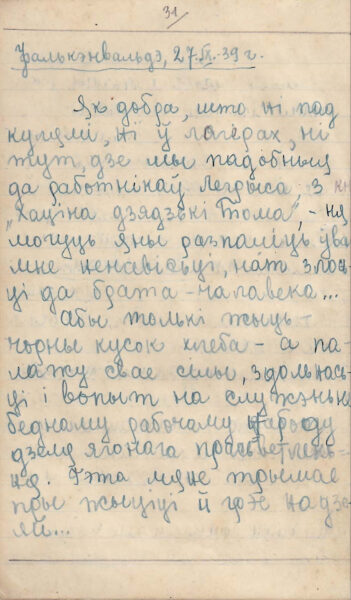 31/
Фалькэнвальдэ, 27.IX.39 г.
Як добра, што ні пад
кулямі, ні ў лагерах, ні
тут, дзе мы падобныя
да работнікаў Легрыса з кн
„Хаціна дзядзькі Тома", – ня
могуць яны распаліць ува
мне ненавісьці, нат злось-
ці да брата – чалавека...
Абы толькі жыць
чорны кусок хлеба – а па-
лажу свае сілы, здольнась-
ці і вопыт на служэньне
беднаму рабочаму народу
дзеля ягонага прасьветлень-
ня. Гэта мяне трымае
пры жыцці й грэе надзе-
яй...